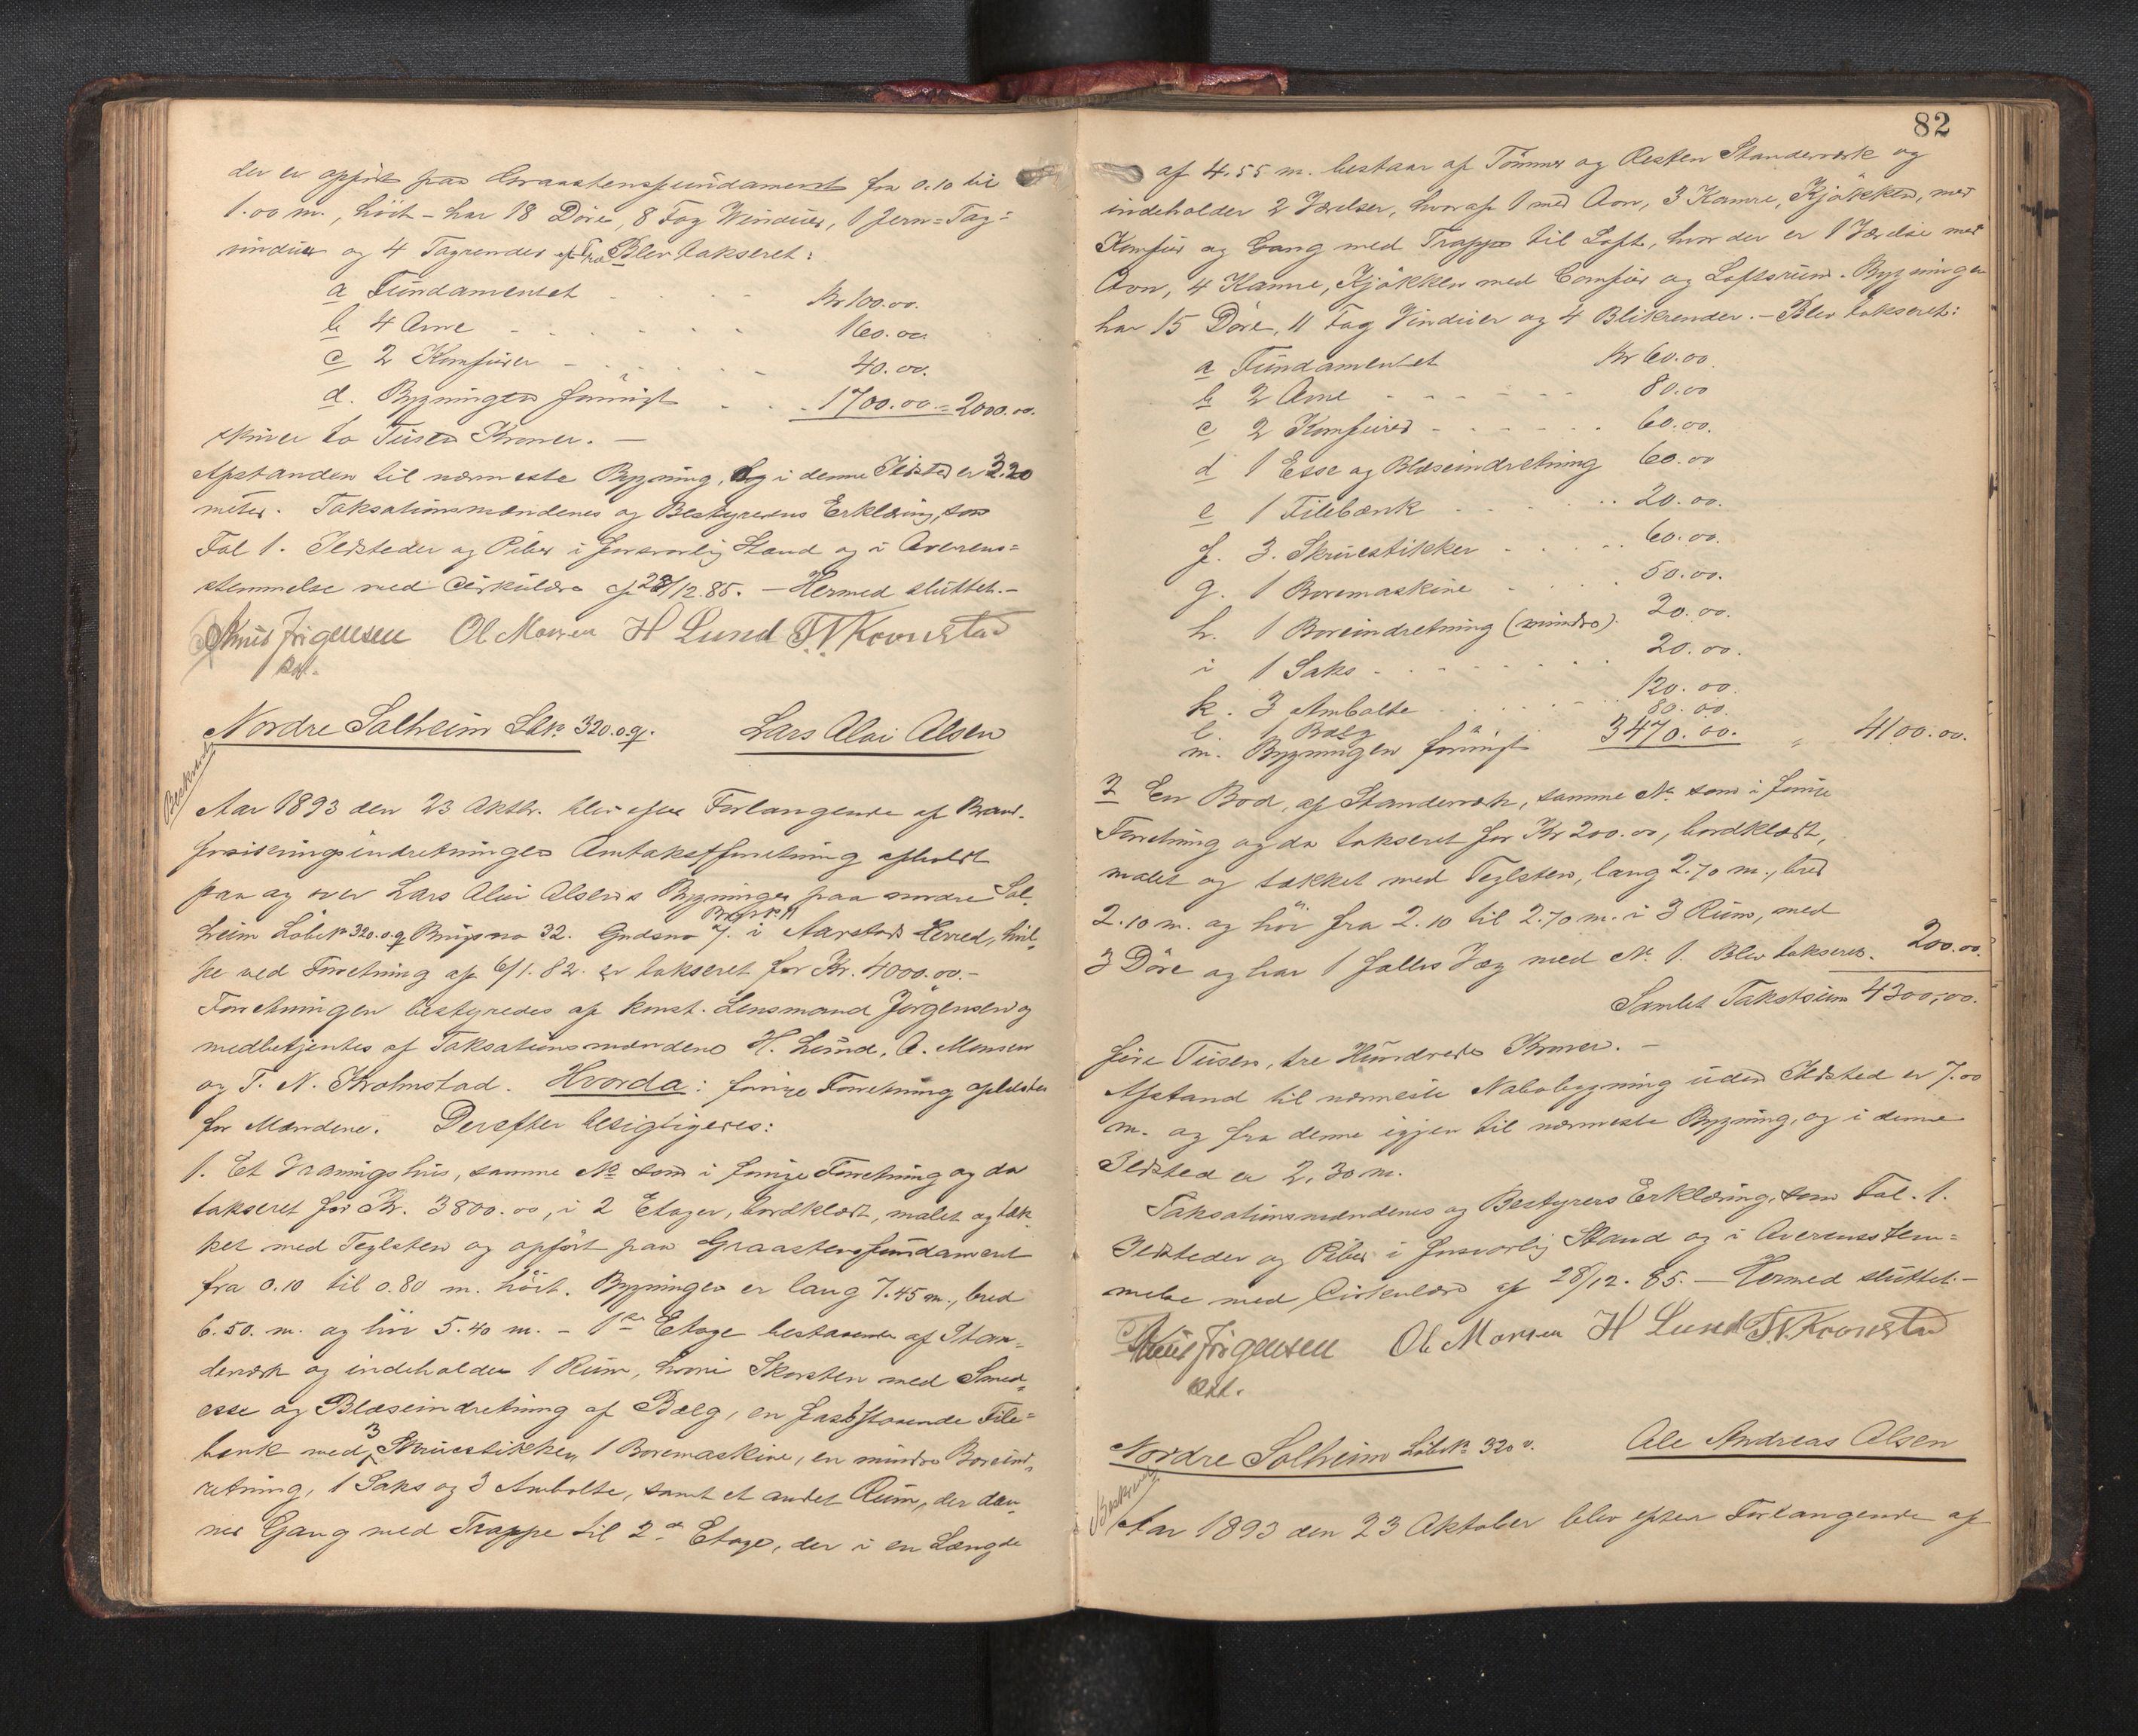 der er opført paa Graastensfundament fra 0.10 til
1.00 m., høit - har 18 Døre, 8 Fag Vinduer, 1 Jern-Tag=
vindue og 4 Tagrender af Træ Blev takseret:
a Fundamentet Kr 100.00.
b 4 Ovne 160.00
c 2 Komfurer 40.00.
d. Bygningen forøvrigt 1700.00 = 2000.00.
skriver to Tusen Kroner. —
Afstanden til nærmeste Bygning, og i denne Ildsted er 2.20
meter. Taksationsmændenes og Bestyrerens Erklæring, som
Fol 1. Ildsteder og Piber i forsvarlig Stand og i Overens=
stemmelse med Cirkulære af 28/12.85. — Hermed sluttet. -
Knud Jørgensen Ol Monsen H Lund T. N. Kromstad
kst.
Nordre Solheim Lbk. 320.o.q. Lars Aloi Olsen
Beskreven
Aar 1893 den 23 Oktbr. blev efter Forlangende af Brand-
forsikringsindretningen Omtakstforretning afholdt
paa og over Lars Aloi Olsens Bygninger paa nordre Sol-
heim Løbek 320.o.q Brugsno 32. Gndsno 7. i Aarstad Herred, hvil-
ke ved Forretning af 6/1.82. er takseret for Kr. 4000.00. -
Forretningen bestyredes af konst. Lensmand Jørgensen og
medbetjentes af Taksationsmændene H. Lund, O. Monsen
og T. N. Kromstad. Hvorda: forrige Forretning oplæstes
for Mændene. Derefter besigtigedes:
1. Et Vaaningshus, samme No som i forrige Forretning og da
takseret for Kr. 3800.00, i 2 Etager, bordklædt, malet og tæk-
ket med Teglsten og opført paa Graastensfundament
fra 0.10 til 0.80 m. høit. Bygningen er lang 7.45 m., bred
6.50. m. og høi 5.40 m. - 1ste Etage bestaaende af Stan-
derværk og indeholder 1 Rum, hvori Skorsten med Smed-
esse og Blæseindretning af Bælg, en fastsstaaende File=
bænk med 3 Skruestikker, 1 Boremaskine, en mindre Boreind-
retning, 1 Saks og 3 Ambolte, samt et andet Rum, der dan-
ner Gang med Trappe til 2den Etage, der i en Længde
82
af 4.55 m. bestaar af Tømmer og Resten Standerværk og
indeholder 2 Værelser, hvoraf 1 med Ovn, 3 Kamre, Kjøkken, med
Komfur og Gang med Trappe til Loft, hvor der er 1 Værelse med
Ovn, 4 Kamre, Kjøkken med Comfur og Loftsrum. Bygningen
har 15 Døre, 11 Fag Vinduer og 4 Blikrender. - Blev takseret:
a Fundamentet Kr 60.00
b 2 Ovne 80.00
c 2 Komfurer 60.00.
d 1 Esse og Blæseindretning 60.00
e 1 Filebænk 20.00.
f. 3. Skruestikker 60.00.
g. 1 Boremaskine 50.00.
h. 1 Boreindretning (mindre). 20.00.
i 1 Saks 20.00.
k. 3 Ambolte 120.00.
l. 1 Bælg 80.00.
m. Bygningen forøvrigt 3470.00. " 4100.00.
2 En Bod, af Standerværk, samme No som i forrige
Forretning og da takseret for Kr 200.00, bordklædt,
malet og tækket med Teglsten, lang 2.70 m., bred
2.10 m. og høi fra 2.10 til 2.70 m. i 3 Rum, med
3 Døre og har 1 fælles Væg med No 1. Blev takseret. 200.00.
Samlet Takstsum 4300,00.
fire Tusen, tre Hundrede Kroner. -
Afstand til nærmeste Nabobygning uden Ildsted er 7.00
m. og fra denne igjen til nærmeste Bygning, og i denne
Ildsted er 2,30 m.
Taksationsmændenes og Bestyrers Erklæring, som Fol. 1.
Ildsteder og Piber i forsvarlig Stand og i Overensstem=
melse med Cirkulære af 28/12.85. - Hermed sluttet. -
Knud Jørgensen Ol Monsen H Lund T. N. Kromstad
kst.
Nordre Solheim Løbek 320 v. Ole Andreas Olsen
Beskreven
Aar 1893 den 23 Oktober blev efter Forlangende af